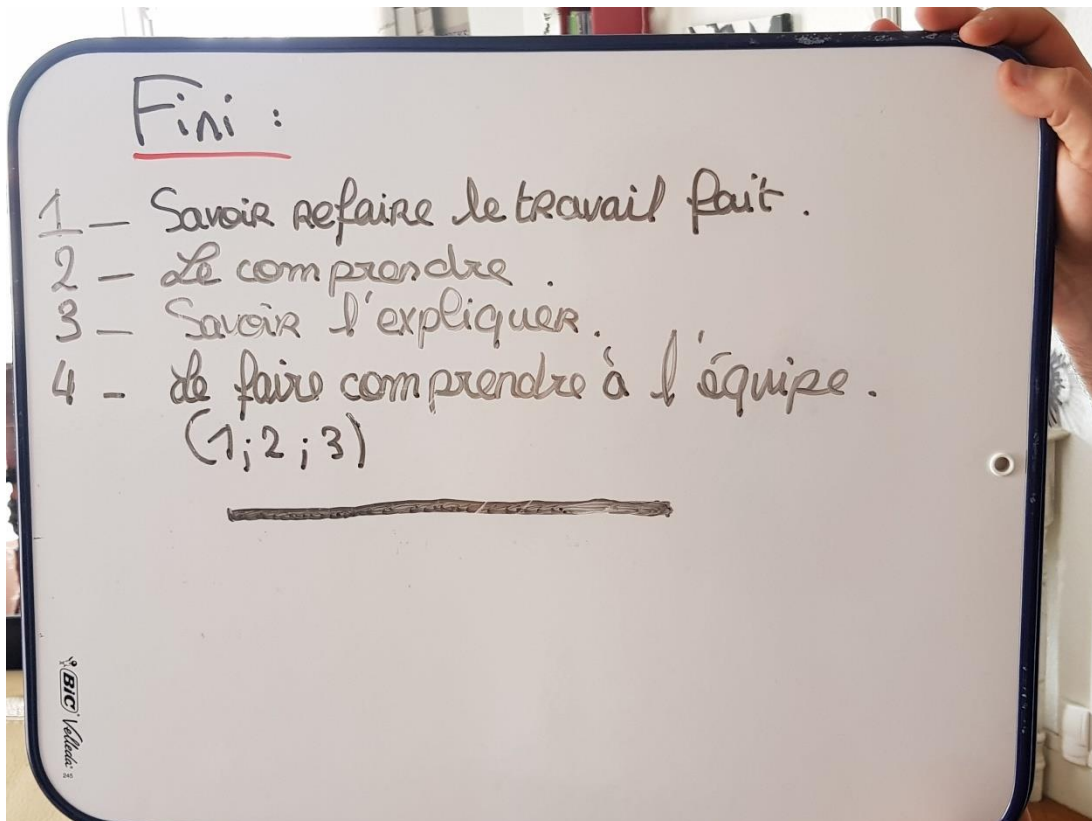 Fini :
1 - Savoir refaire le travail fait.
2 - Le comprendre.
3 - Savoir l'expliquer.
4 - Le faire comprendre à l'équipe.
(1; 2; 3)
BIC Velleda